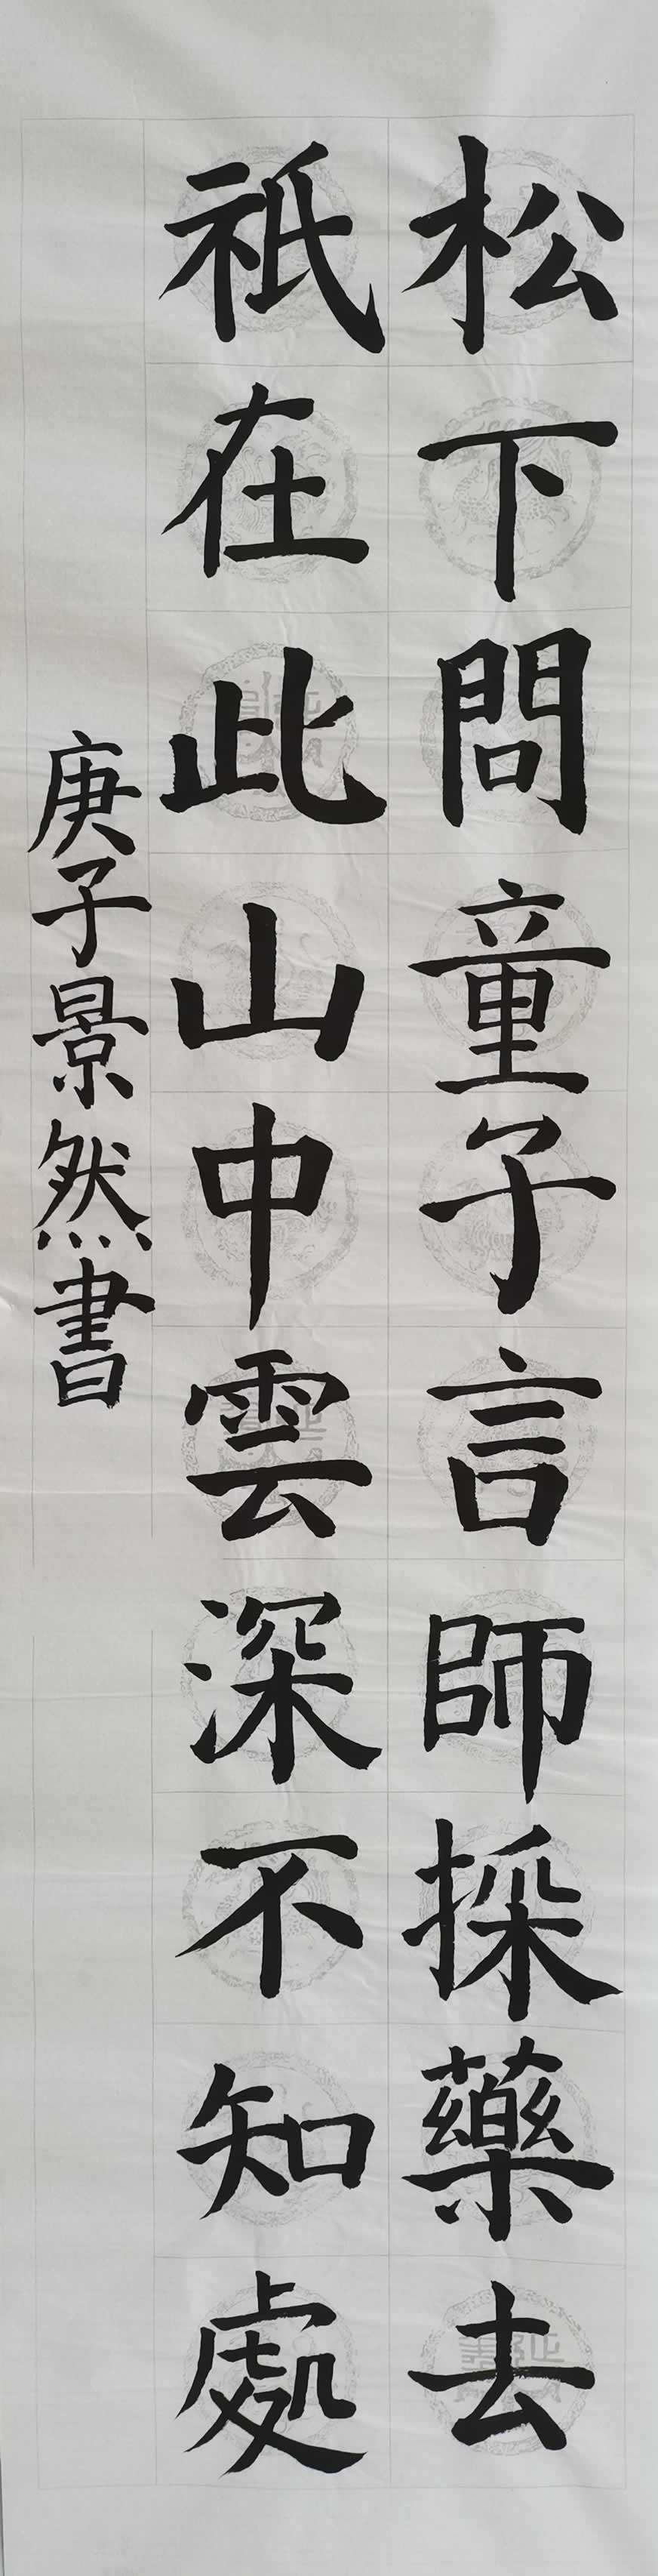 松下問童子言師採藥去
祇在此山中雲深不知處
庚子景然書